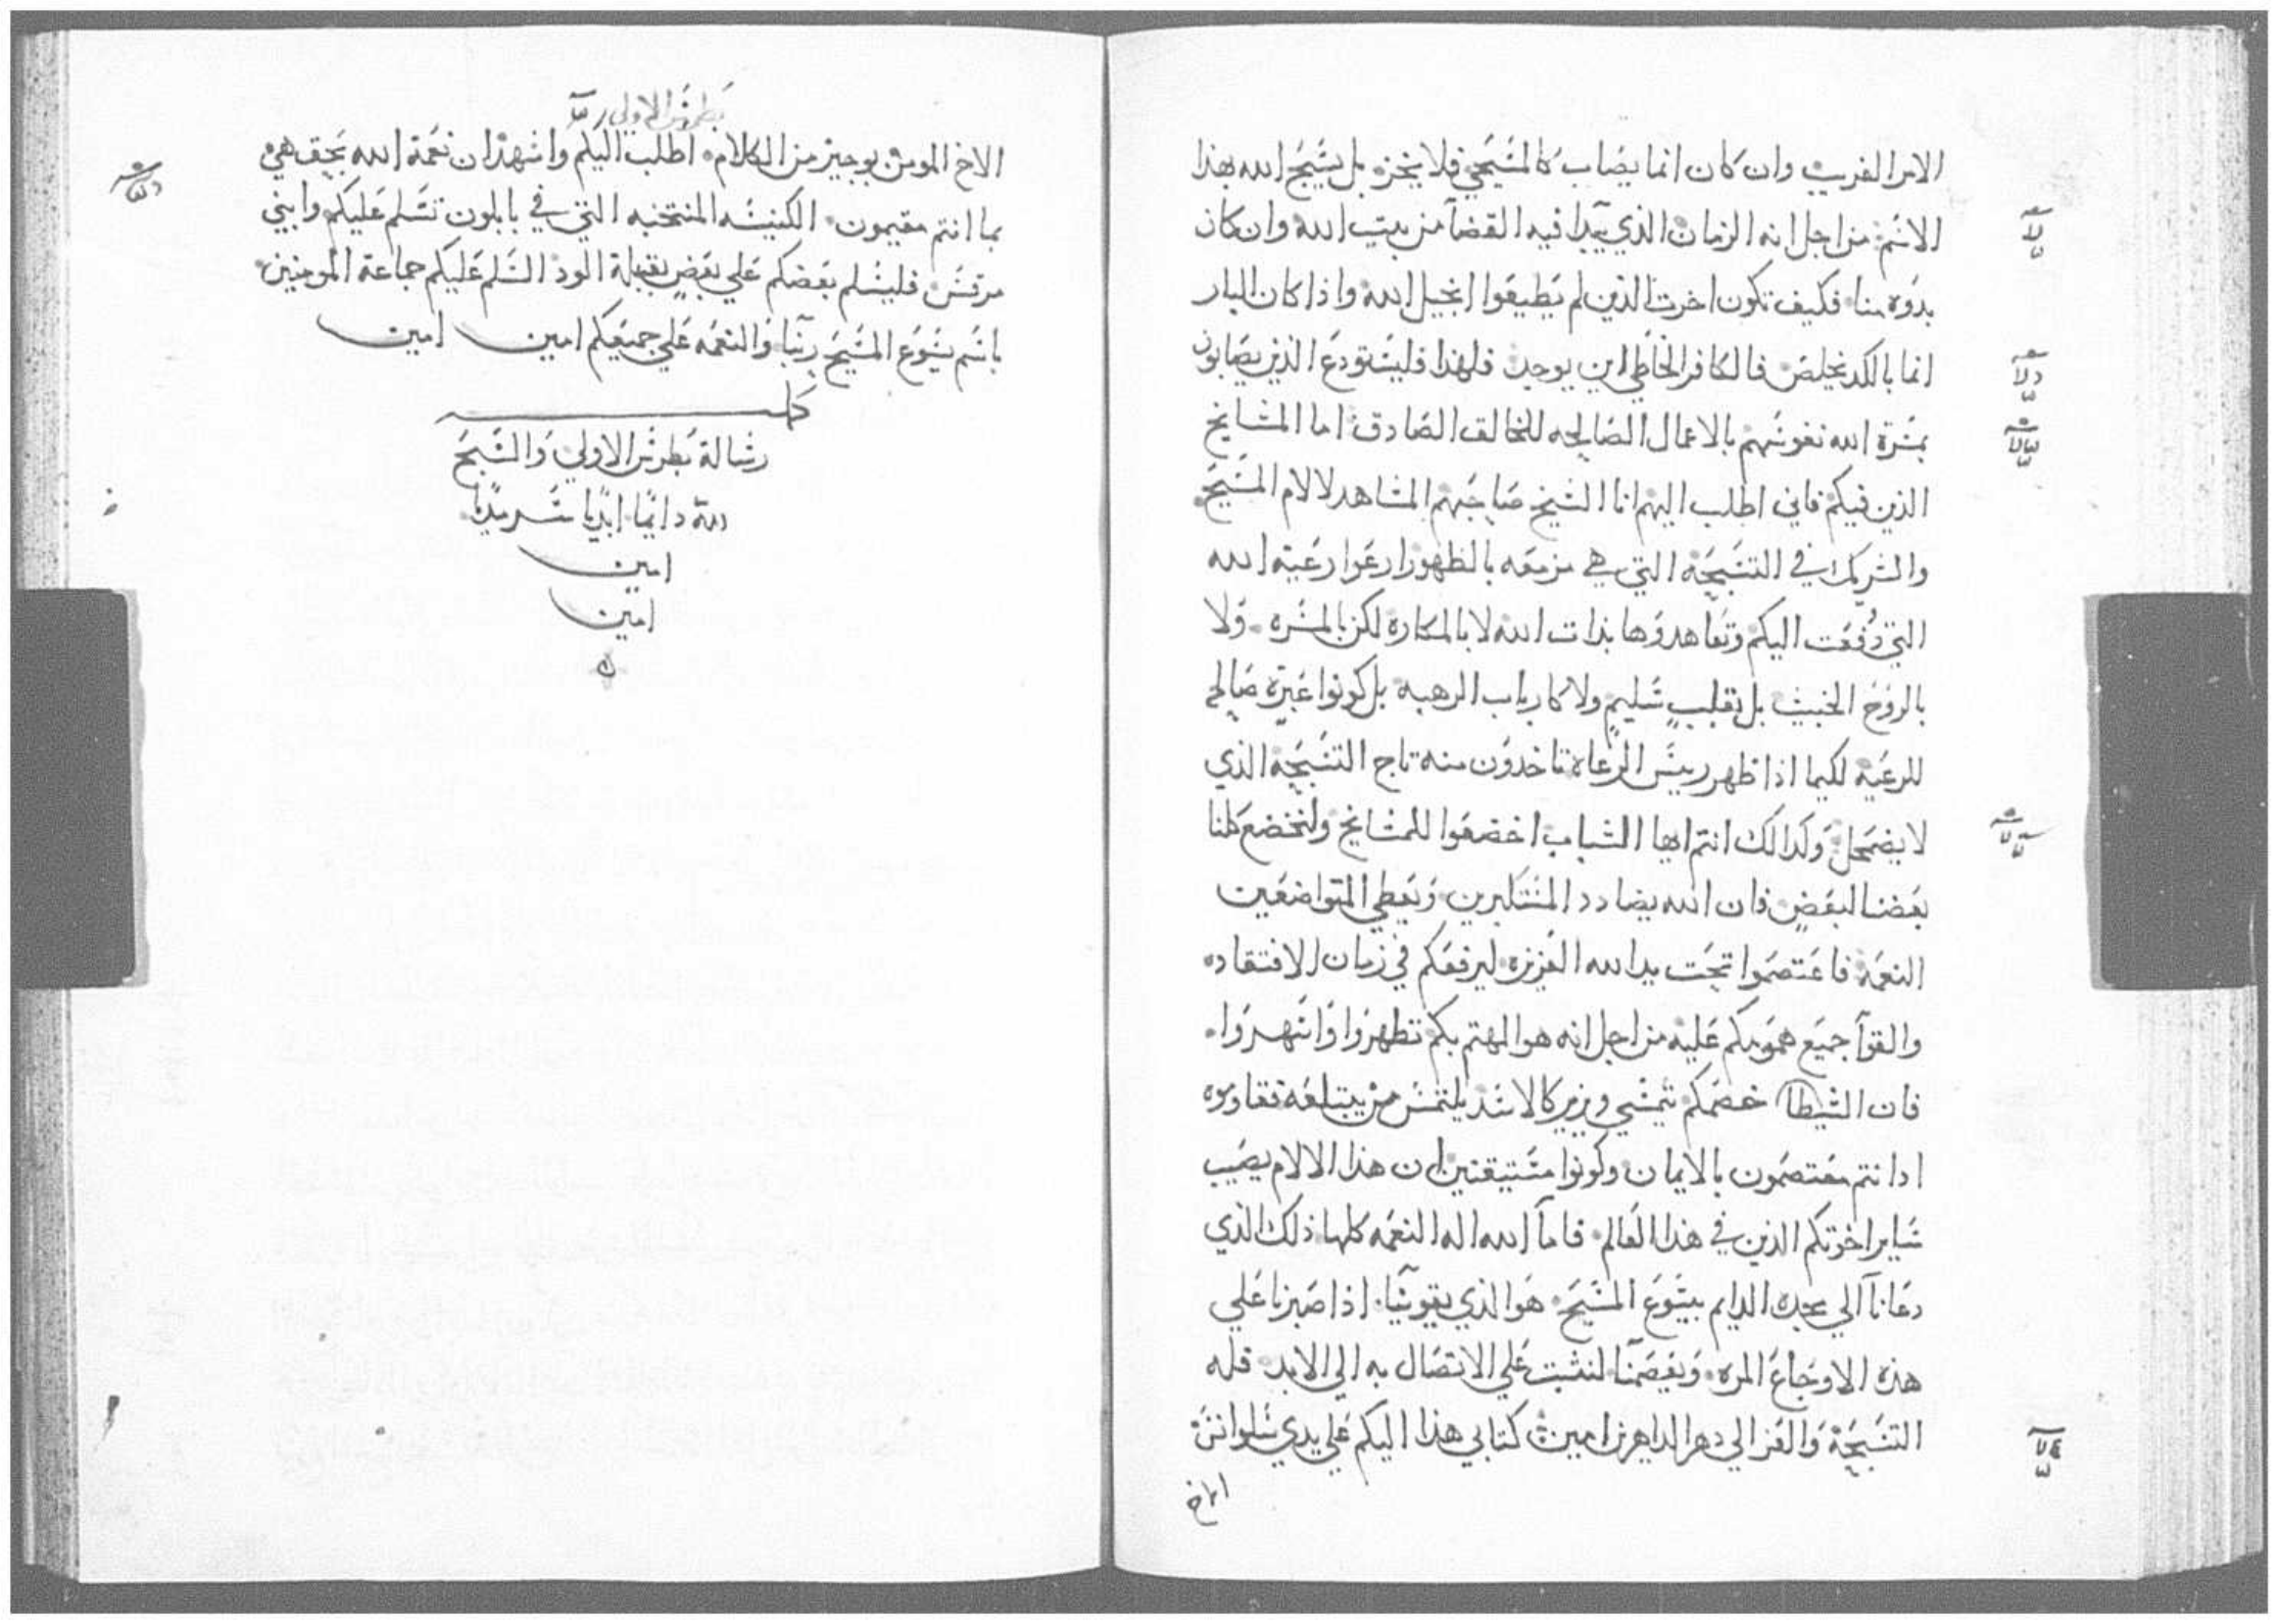 الامر الغريب وان كان انما يصاب كالمسيحي فلا يخز بل يسبح الله بهذا
الاسم من اجل انه الزمان الذي يبدا فيه القضا من بيت الله وان كان
بدوه منا فكيف تكون اخرت الذين لم يطيعوا انجيل الله واذا كان البار
انما بالكد يخلص فالكافر الخاطي اين يوجد فلهذا فليستودع الذين يصابون
بمسرة الله نفوسهم بالاعمال الصالحه للخالق الصادق اما المشايخ
الذين فيكم فاني اطلب اليهم انا الشيخ صاحبهم المشاهد لالام المسيح
والشريك في التسبحة التي هي مزمعه بالظهور ارعوا رعية الله
التي دفعت اليكم وتعاهدوها بذات الله لا بالمكاره لكن بالمسره ولا
بالروح الخبيث بل بقلب سليم ولا كارباب الرهبه بل كونوا عبرة صالح
للرعية لكيما اذا ظهر رييس الرعاه تاخدون منه تاج التسبحة الذي
لا يضمحل وكدالك انتم ايها الشباب اخضعوا للمشايخ ولنخضع كلنا
بعضنا لبعض فان الله يضادد المستكبرين ويعطي المتواضعين
النعمة فاعتصموا تحت يد الله العزيزه ليرفعكم في زمان الافتقاد
والقوا جميع همومكم عليه من اجل انه هو المهتم بكم تطهروا واسهروا
فان الشيطان خصمكم يمشي ويزير كالاسد يلتمس من يبتلعه فقاوموه
اذ انتم معتصمون بالايمان وكونوا مستيقنين ان هذا الالام يصيب
ساير اخوتكم الذين في هذا العالم فاما الله اله النعمه كلها ذلك الذي
دعانا الي مجده الدايم بيسوع المسيح هو الذي يقوينا اذا صبرنا علي
هذه الاوجاع المره ويعصمنا لنثبت علي الاتصال به الي الابد فله
التسبحة والعز الي دهر الداهرين امين كتابي هذا اليكم علي يدي سلوانس
الاخ
بطرس الاولي
الاخ المومن بوجيز من الكلام اطلب اليكم واشهد ان نعمة الله بحق هي
بما انتم مقيمون الكنيسه المنتخبه التي في بابلون تسلم عليكم وابني
مرقس فليسلم بعضكم علي بعض بقبلة الود السلم عليكم جماعة المومنين
باسم يسوع المسيح ربنا والنعمه علي جميعكم امين امين
كمل
رسالة بطرس الاولي والسبح
لله دايما ابديا سرمديا
امين
امين